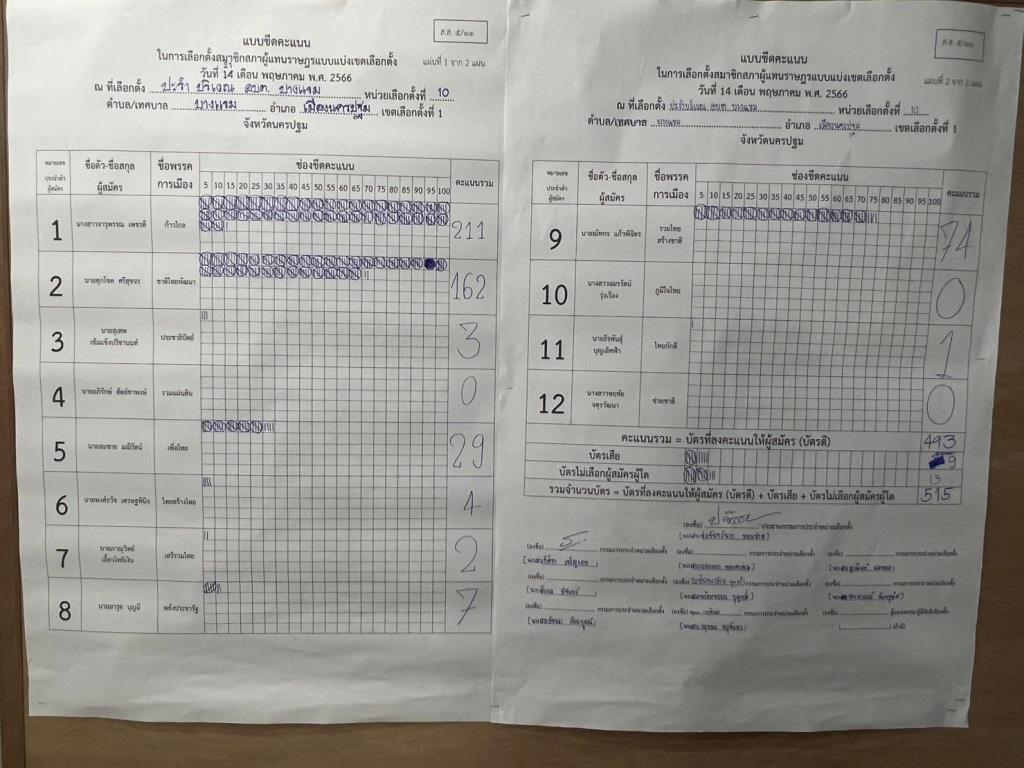 ส.ส. ๕/๑๑
แบบขีดคะแนน
ในการเลือกตั้งสมาชิกสภาผู้แทนราษฎรแบบแบ่งเขตเลือกตั้ง
แผ่นที่ 1 จาก 2 แผ่น
วันที่ 14 เดือน พฤษภาคม พ.ศ. 2566
ณ ที่เลือกตั้ง ปะรำ บริเวณ อบต. บางแขม หน่วยเลือกตั้งที่ 10
ตำบล/เทศบาล บางแขม อำเภอ เมืองนครปฐม เขตเลือกตั้งที่ 1
จังหวัดนครปฐม
หมายเลขประจำตัวผู้สมัคร ชื่อตัว-ชื่อสกุล ผู้สมัคร ชื่อพรรคการเมือง ช่องขีดคะแนน คะแนนรวม
5 10 15 20 25 30 35 40 45 50 55 60 65 70 75 80 85 90 95 100
1 นางสาวจารุพรรณ เพชรดี ก้าวไกล 211
2 นายศุภโชค ศรีสุขจร ชาติไทยพัฒนา 162
3 นายสุเทพ เข้มแข็งปรีชานนท์ ประชาธิปัตย์ 3
4 นายอภิรักษ์ รวมแผ่นดิน 0
5 นายสมชาย มณีรัตน์ เพื่อไทย 29
6 นายพงศ์ภวัช เศรษฐพินิจ ไทยสร้างไทย 4
7 นายภาณุวิทย์ เสรีรวมไทย 2
8 นายมารุต บุญมี พลังประชารัฐ 7
ส.ส. ๕/๑๑
แบบขีดคะแนน
ในการเลือกตั้งสมาชิกสภาผู้แทนราษฎรแบบแบ่งเขตเลือกตั้ง
แผ่นที่ 2 จาก 2 แผ่น
วันที่ 14 เดือน พฤษภาคม พ.ศ. 2566
ณ ที่เลือกตั้ง ปะรำบริเวณ อบต. บางแขม หน่วยเลือกตั้งที่ 10
ตำบล/เทศบาล บางแขม อำเภอ เมืองนครปฐม เขตเลือกตั้งที่ 1
จังหวัดนครปฐม
หมายเลขประจำตัวผู้สมัคร ชื่อตัว-ชื่อสกุล ผู้สมัคร ชื่อพรรคการเมือง ช่องขีดคะแนน คะแนนรวม
5 10 15 20 25 30 35 40 45 50 55 60 65 70 75 80 85 90 95 100
9 นายณัทกร แก้วพิจิตร รวมไทยสร้างชาติ 74
10 นางสาวอมรรัตน์ รุ่งเรือง ภูมิใจไทย 0
11 นายธีรพันธุ์ บุญเลิศฟ้า ไทยภักดี 1
12 นางสาวพฤทัย จตุรวัฒนา ช่วยชาติ 0
คะแนนรวม = บัตรที่ลงคะแนนให้ผู้สมัคร (บัตรดี) 493
บัตรเสีย 9
บัตรไม่เลือกผู้สมัครผู้ใด 13
รวมจำนวนบัตร = บัตรที่ลงคะแนนให้ผู้สมัคร (บัตรดี) + บัตรเสีย + บัตรไม่เลือกผู้สมัครผู้ใด 515
(ลงชื่อ) ประธานกรรมการประจำหน่วยเลือกตั้ง
(ลงชื่อ) กรรมการประจำหน่วยเลือกตั้ง (ลงชื่อ) กรรมการประจำหน่วยเลือกตั้ง (ลงชื่อ) กรรมการประจำหน่วยเลือกตั้ง
(ลงชื่อ) กรรมการประจำหน่วยเลือกตั้ง (ลงชื่อ) กรรมการประจำหน่วยเลือกตั้ง (ลงชื่อ) กรรมการประจำหน่วยเลือกตั้ง
(ลงชื่อ) กรรมการประจำหน่วยเลือกตั้ง (ลงชื่อ) กรรมการประจำหน่วยเลือกตั้ง (ลงชื่อ)